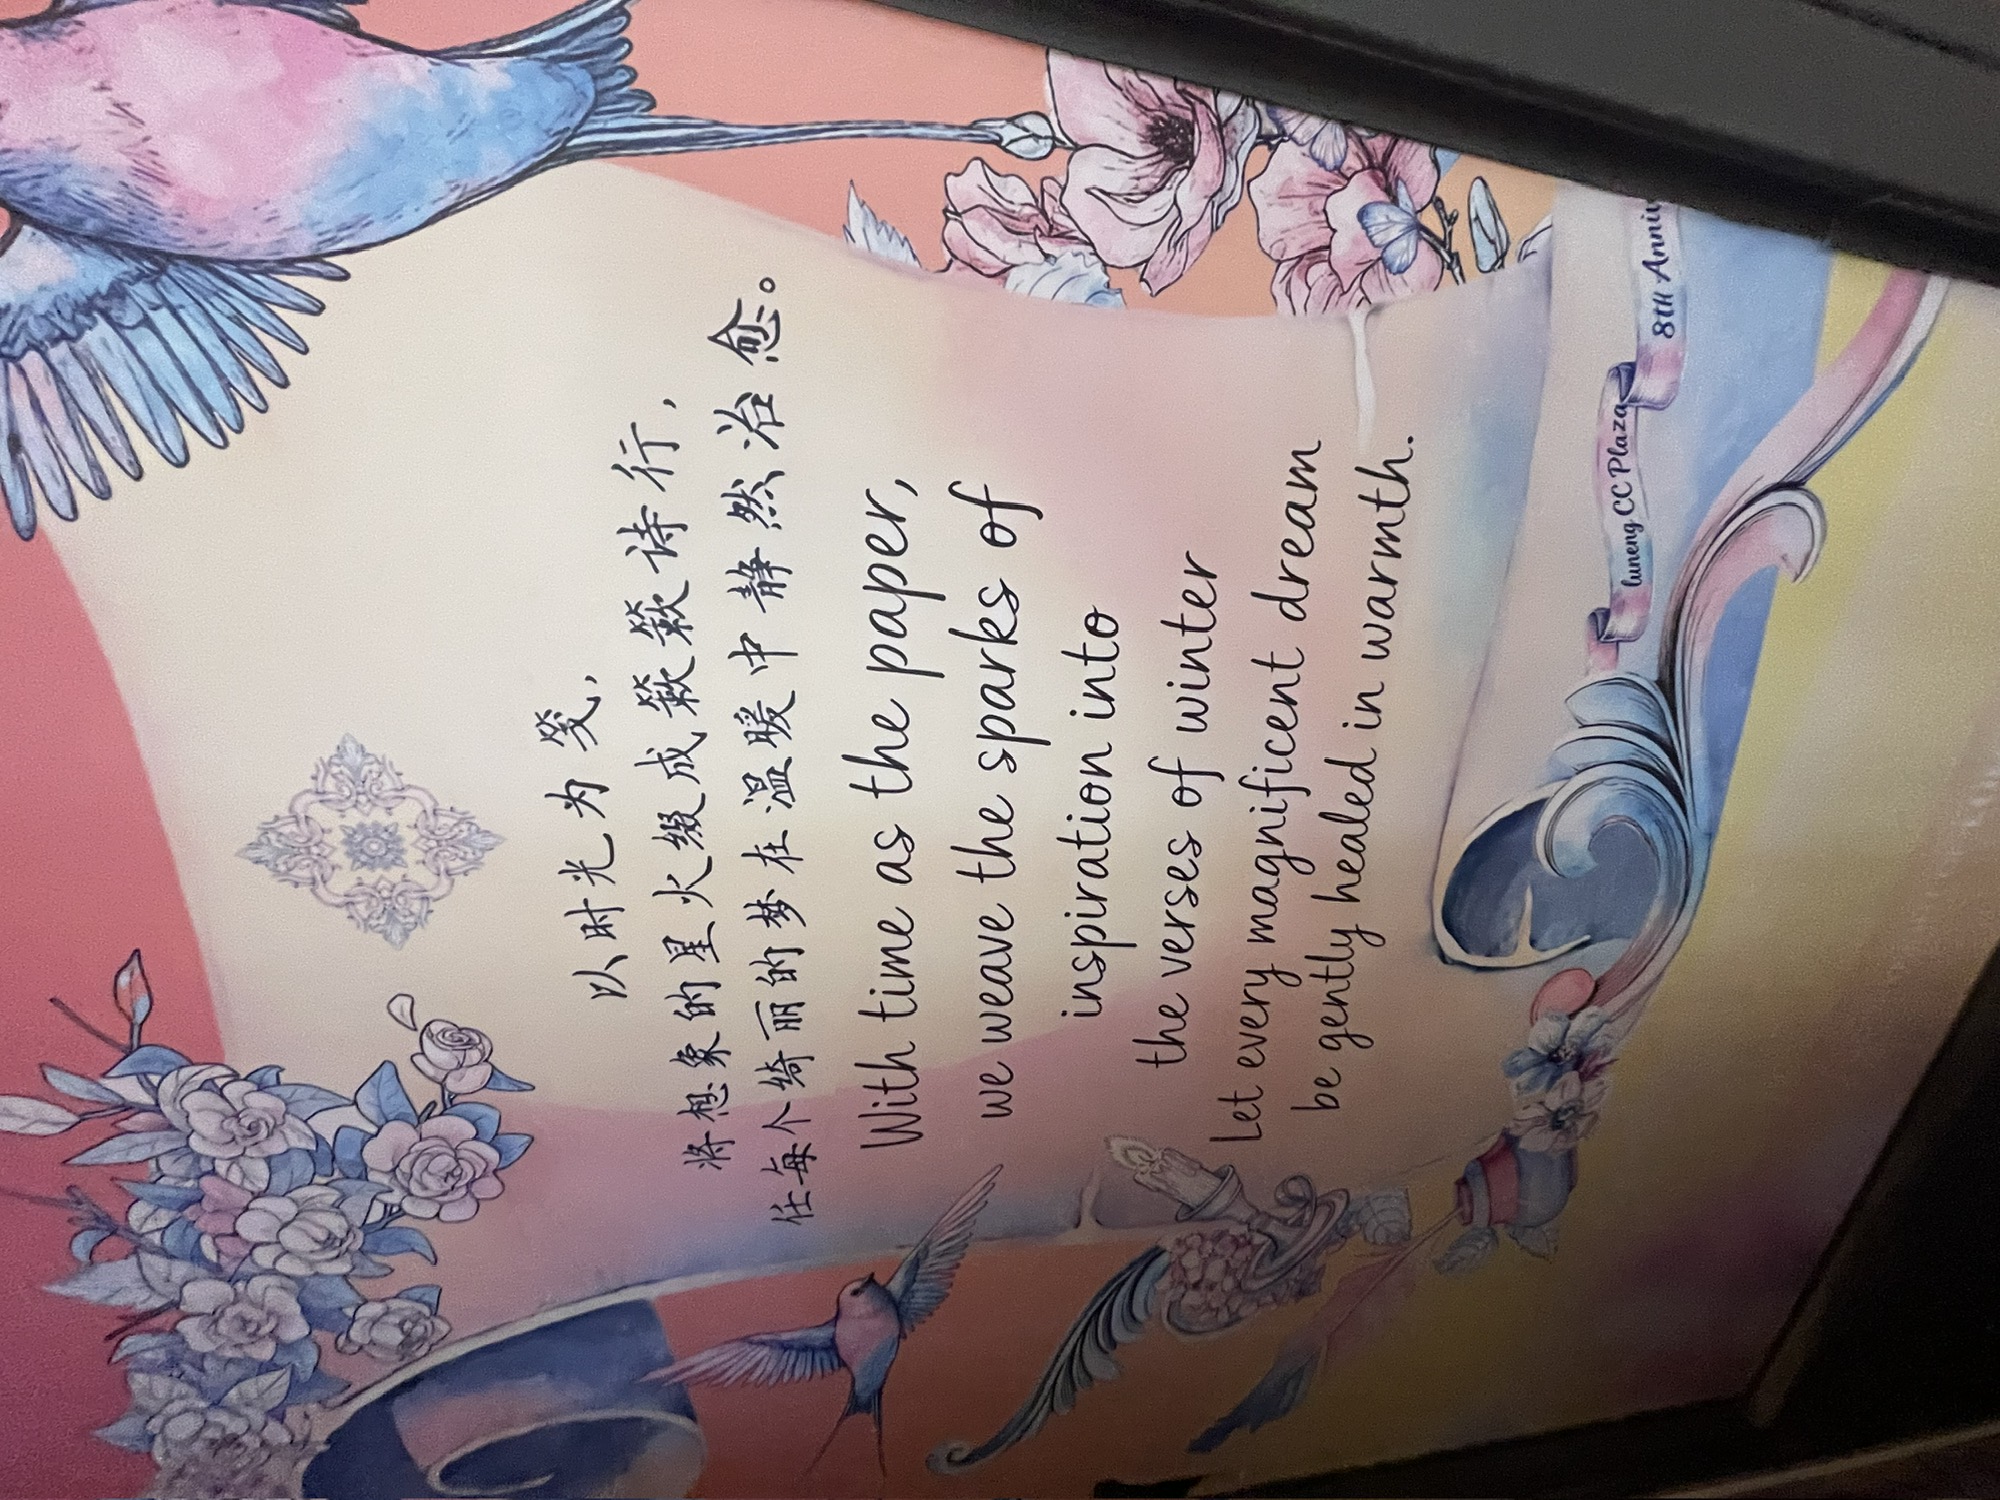 以时光为笺，
将想象的星火缀成簌簌诗行，
任每个绮丽的梦在温暖中静然治愈。
With time as the paper,
we weave the sparks of
inspiration into
the verses of winter
Let every magnificent dream
be gently healed in warmth.
luneng CC Plaza
8th Anniv